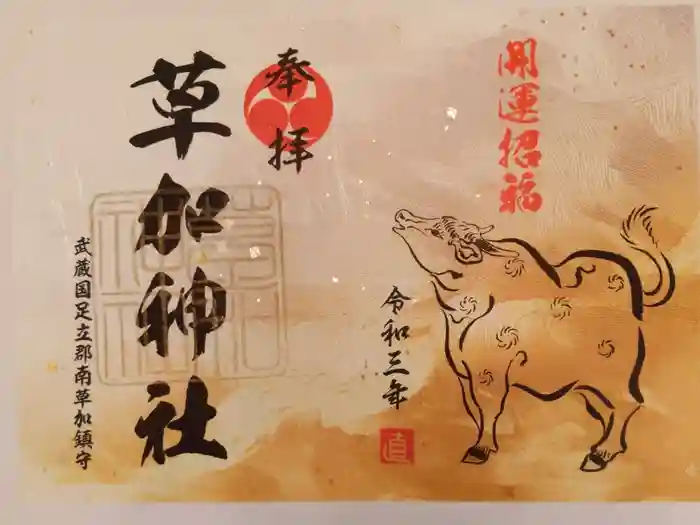 開運招福
令和三年
直
奉拝
草加神社
武蔵国足立郡南草加鎮守